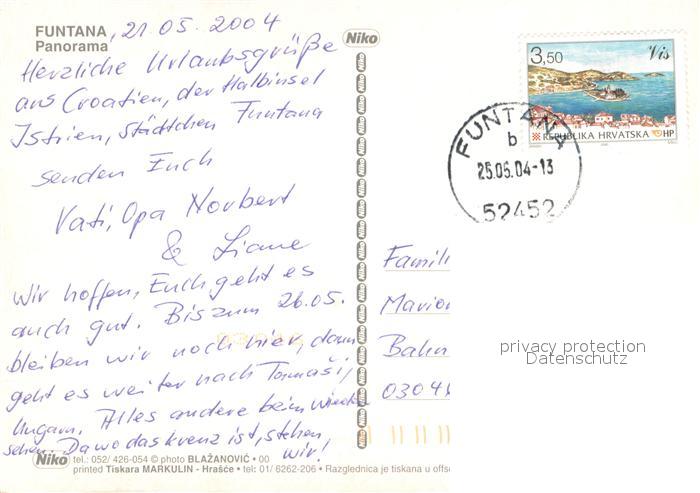 FUNTANA, 21.05.2004
Panorama
Herzliche Urlaubsgrüße
aus Croatien, der Halbinsel
Istrien, Städtchen Funtana
senden Euch
Vati, Opa Norbert
& Liane
Wir hoffen, Euch geht es
auch gut. Bis zum 26.05.
bleiben wir noch hier, dann
geht es weiter nach Tamaši,
Ungarn. Alles andere beim Wieder
sehen. Da wo das Kreuz ist, stehen
wir!
Niko tel.: 052/ 426-054 © photo BLAŽANOVIĆ • 00
printed Tiskara MARKULIN - Hrašće • tel: 01/ 6262-206 • Razglednica je tiskana u offs
Niko
3,50 Vis
REPUBLIKA HRVATSKA HP
FUNTANA
b
25.05.04-13
52452
Famili
Marion
Bahn
0304
privacy protection
Datenschutz